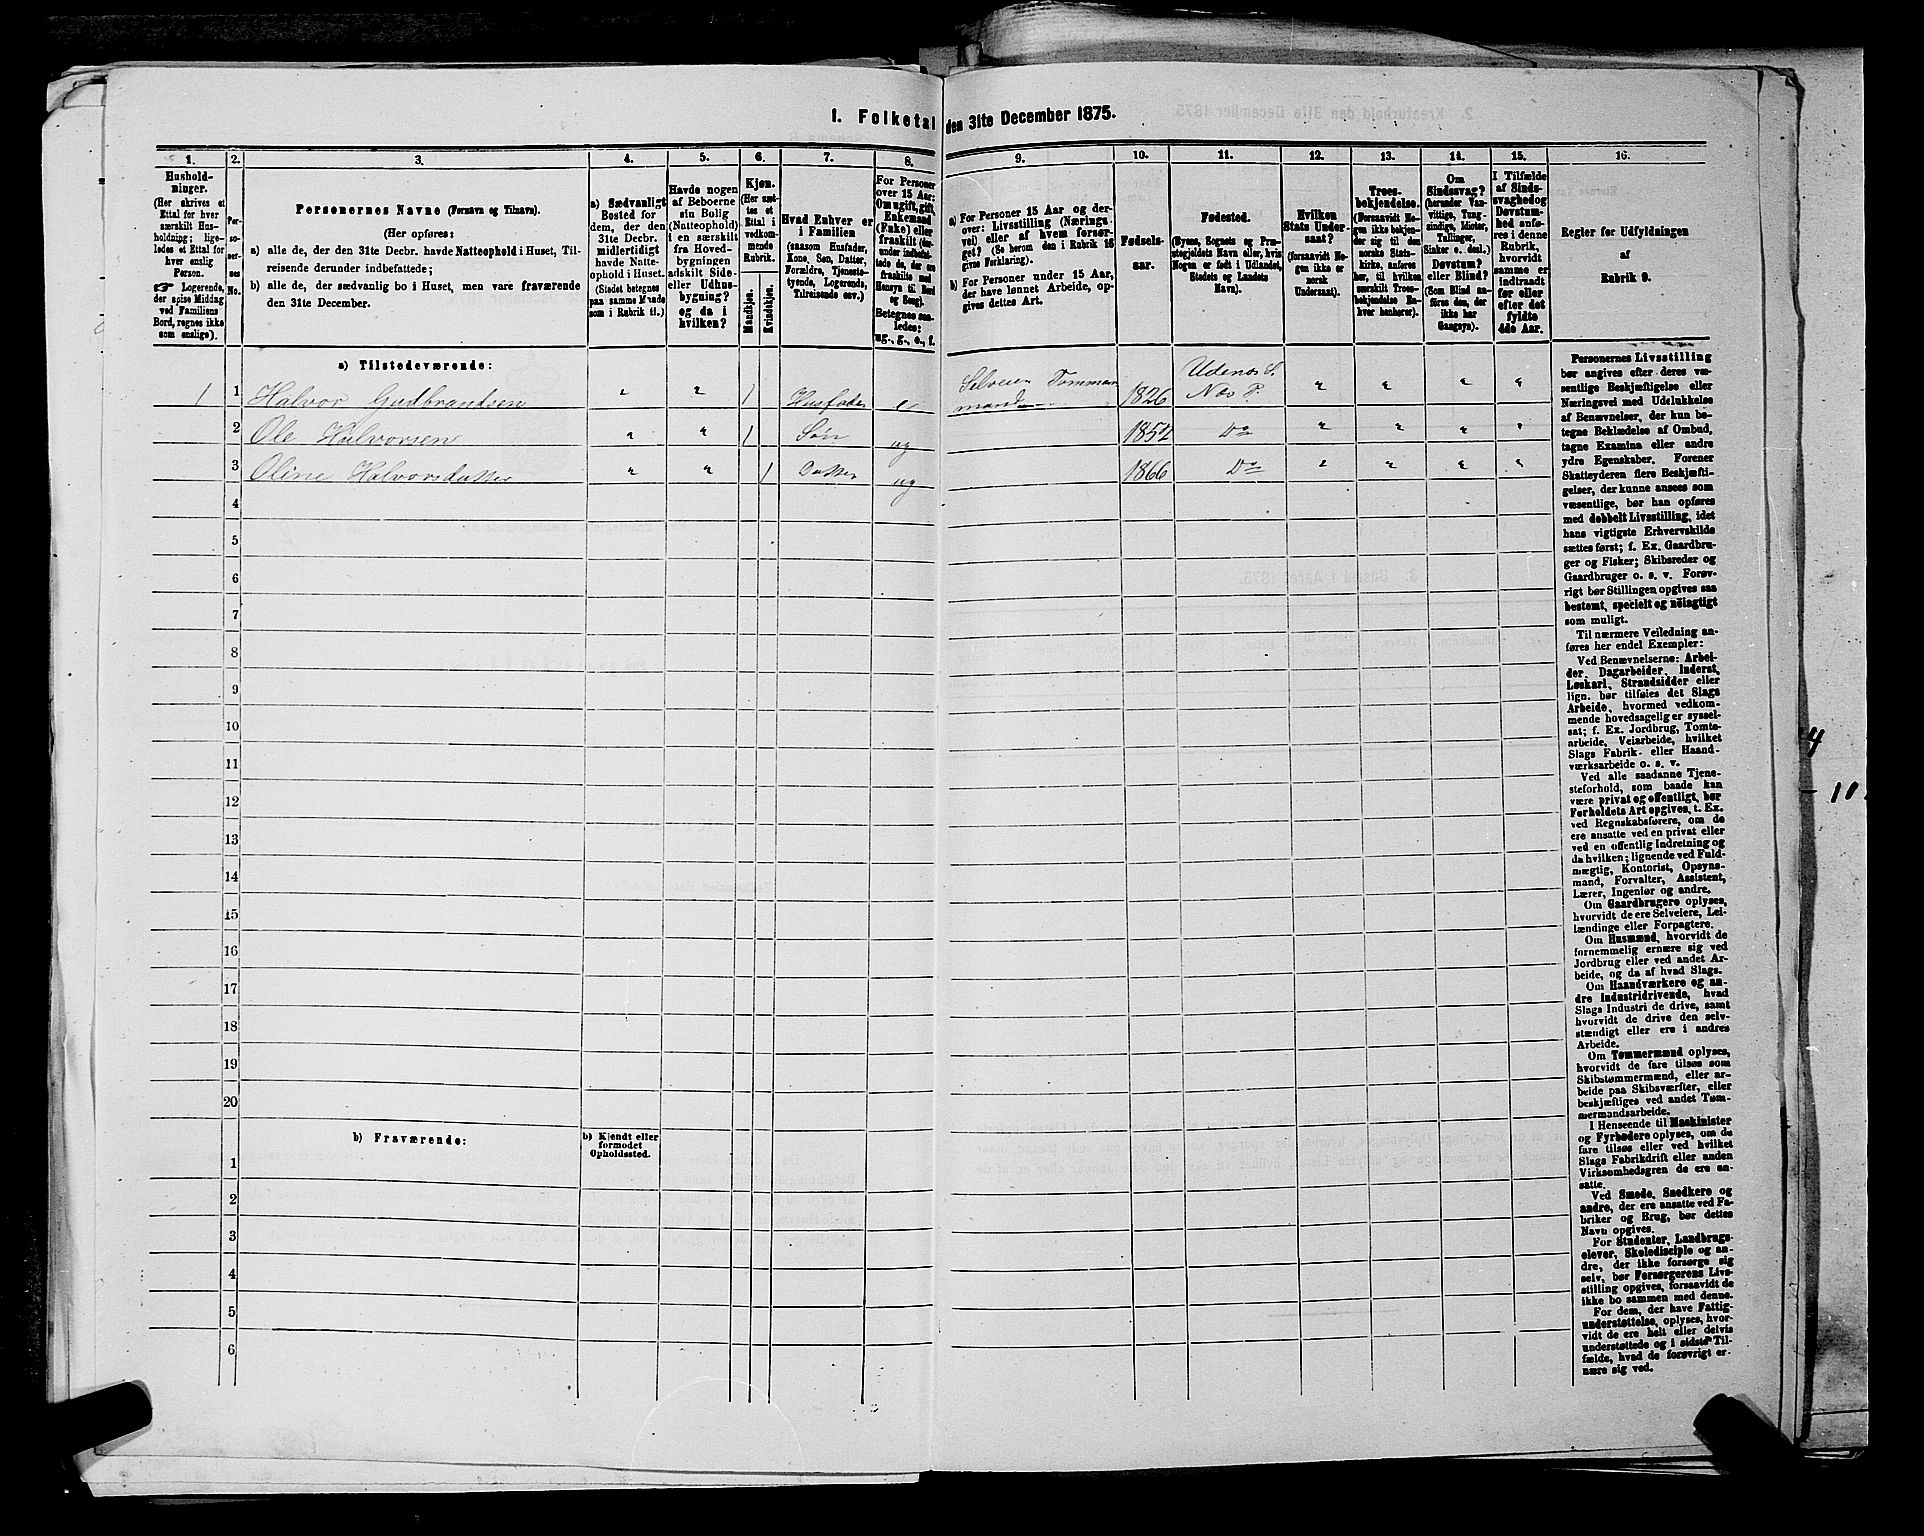 1. Folketal den 31te December 1875.
1. 2. 3. 4. 5. 6. 7. 8. 9. 10. 11. 12. 13. 14. 15. 16.
Hushold-
ninger.
(Her skrives et
Ettal for hver
særskilt Hus-
holdning; lige-
ledes et Ettal for
hver enslig
Person.
☞ Logerende,
der spise Middag
ved Familiens
Bord, regnes ikke
som enslige).
Per-
so-
ner-
nes
No.
Personernes Navne (Fornavn og Tilnavn).
(Her opføres:
a) alle de, der den 31te Decbr. havde Natteophold i Huset, Til-
reisende derunder indbefattede;
b) alle de, der sædvanlig bo i Huset, men vare fraværende
den 31te December.
a) Sædvanligt
Bosted for
dem, der den
31te Decbr.
midlertidigt
havde Natte-
ophold i Huset.
(Stedet betegnes
paa samme Maade
som i Rubrik 11.)
Havde nogen
af Beboerne
sin Bolig
(Natteophold)
i en særskilt
fra Hoved-
bygningen
adskilt Side-
eller Udhus-
bygning?
og da i
hvilken?
Kjøn.
(Her sæt-
tes et
Ettal i
vedkom-
mende
Rubrik.
Mandkjøn.
Kvindekjøn.
Hvad Enhver er
i Familien
(saasom Husfader,
Kone, Søn, Datter,
Forældre, Tjeneste-
tyende, Logerende,
Tilreisende osv.)
For Personer
over 15 Aar:
Om ugift, gift,
Enkemand
(Enke) eller
fraskilt (der-
under indbefat-
tede de, der ere
fraskilte med
Hensyn til Bord
og Seng).
Betegnes saa-
ledes:
ug., g., e., f.
a) For Personer 15 Aar og der-
over: Livsstilling (Nærings-
vei) eller af hvem forsør-
get? (Se herom den i Rubrik 16
givne Forklaring).
b) For Personer under 15 Aar,
der have lønnet Arbeide, op-
gives dettes Art.
Fødsels-
aar.
Fødested.
(Byens, Sognets og Præ-
stegjeldets Navn eller, hvis
Nogen er født i Udlandet,
Stedets og Landets
Navn).
Hvilken
Stats Under-
saat?
(hvis No-
gen ikke er
norsk
Undersaat).
Troes-
bekjendelse.
(Forsaavidt No-
gen ikke bekjen-
der sig til den
norske Stats-
kirke, anføres
her, til hvilken
særskilt Troes-
bekjendelse En-
hver henhører).
Om
Sindssvag?
(herunder Van-
vittige, Tung-
sindige, Idioter,
Tullinger,
Sinker o. desl.)
Døvstum?
eller Blind?
(Som Blind an-
føres den, der
ikke har
Gangsyn).
I Tilfælde
af Sinds-
svaghed og
Døvstum-
hed anfø-
res i denne
Rubrik,
hvorvidt
samme er
indtraadt
før eller
efter det
fyldte
4de Aar.
Regler for Udfyldningen
af
Rubrik 9.
a) Tilstedeværende:
1 1 Halvor Gudbrandsen " " 1 Husfader e Selveier Tømmermand 1826 Udenes S. Næs P. " " " "
2 Ole Halvorsen " " 1 Søn ug 1854 Do " " " "
3 Oline Halvorsdatter " " 1 Datter ug 1866 Do " " " "
4
5
6
7
8
9
10
11
12
13
14
15
16
17
18
19
20
b) Fraværende:
b) Kjendt eller
formodet
Opholdssted.
1
2
3
4
5
6
Personernes Livsstilling
bør angives efter deres væ-
sentlige Beskjæftigelse eller
Næringsvei med Udelukkelse
af Benævnelser, der kun be-
tegne Beklædelse af Ombud,
tagne Examina eller andre
ydre Egenskaber. Forener
Skatteyderen flere Beskjæfti-
gelser, der kunne ansees som
væsentlige, bør han opføres
med dobbelt Livsstilling, idet
hans vigtigste Erhvervskilde
sættes først; f. Ex. Gaardbru-
ger og Fisker; Skibsreder og
Gaardbruger o. s. v. Forøv-
rigt bør Stillingen opgives saa
bestemt, specielt og nøiagtigt
som muligt.
Til nærmere Veiledning an-
føres her endel Exempler:
Ved Benævnelserne: Arbei-
der, Dagarbeider, Inderst,
Løskarl, Strandsidder eller
lign. bør tilføies det Slags
Arbeide, hvormed vedkom-
mende hovedsagelig er syssel-
sat; f. Ex. Jordbrug, Tomte-
arbeide, Veiarbeide, hvilket
Slags Fabrik- eller Haand-
værksarbeide o. s. v.
Ved alle saadanne Tjene-
steforhold, som baade kan
være privat og offentligt, bør
Forholdets Art opgives, t. Ex.
ved Regnskabsførere, om de
ere ansatte ved en privat eller
ved en offentlig Indretning og
da hvilken; lignende ved Fuld-
mægtig, Kontorist, Opsyns-
mand, Forvalter, Assistent,
Lærer, Ingeniør og andre.
Om Gaardbrugere oplyses,
hvorvidt de ere Selveiere, Lei-
lændinge eller Forpagtere.
Om Husmænd, hvorvidt de
fornemmelig ernære sig ved
Jordbrug eller ved andet Ar-
beide, og da af hvad Slags.
Om Haandværkere og an-
dre Industridrivende, hvad
Slags Industri de drive, samt
hvorvidt de drive den selv-
stændigt eller ere i andres
Arbeide.
Om Tømmermænd oplyses,
hvorvidt de fare tilsøs som
Skibstømmermænd, eller ar-
beide paa Skibsværfter, eller
beskjæftiges ved andet Tøm-
mermandsarbeide.
I Henseende til Maskinister
og Fyrbødere oplyses, om de
fare tilsøs eller ved hvilket
Slags Fabrikdrift eller anden
Virksomhedsgren de ere an-
satte.
Ved Smede, Snedkere og
andre, der ere ansatte ved Fa-
briker og Brug, bør dettes
Navn opgives.
For Studenter, Landbrugs-
elever, Skoledisciple og an-
dre, der ikke forsørge sig
selv, bør Forsørgerens Livs-
stilling opgives, forsaavidt de
ikke bo sammen med denne.
For dem, der have Fattig-
understøttelse, oplyses, hvor-
vidt de ere helt eller delvis
understøttede og i sidste Til-
fælde, hvad de forøvrigt er-
nære sig ved.